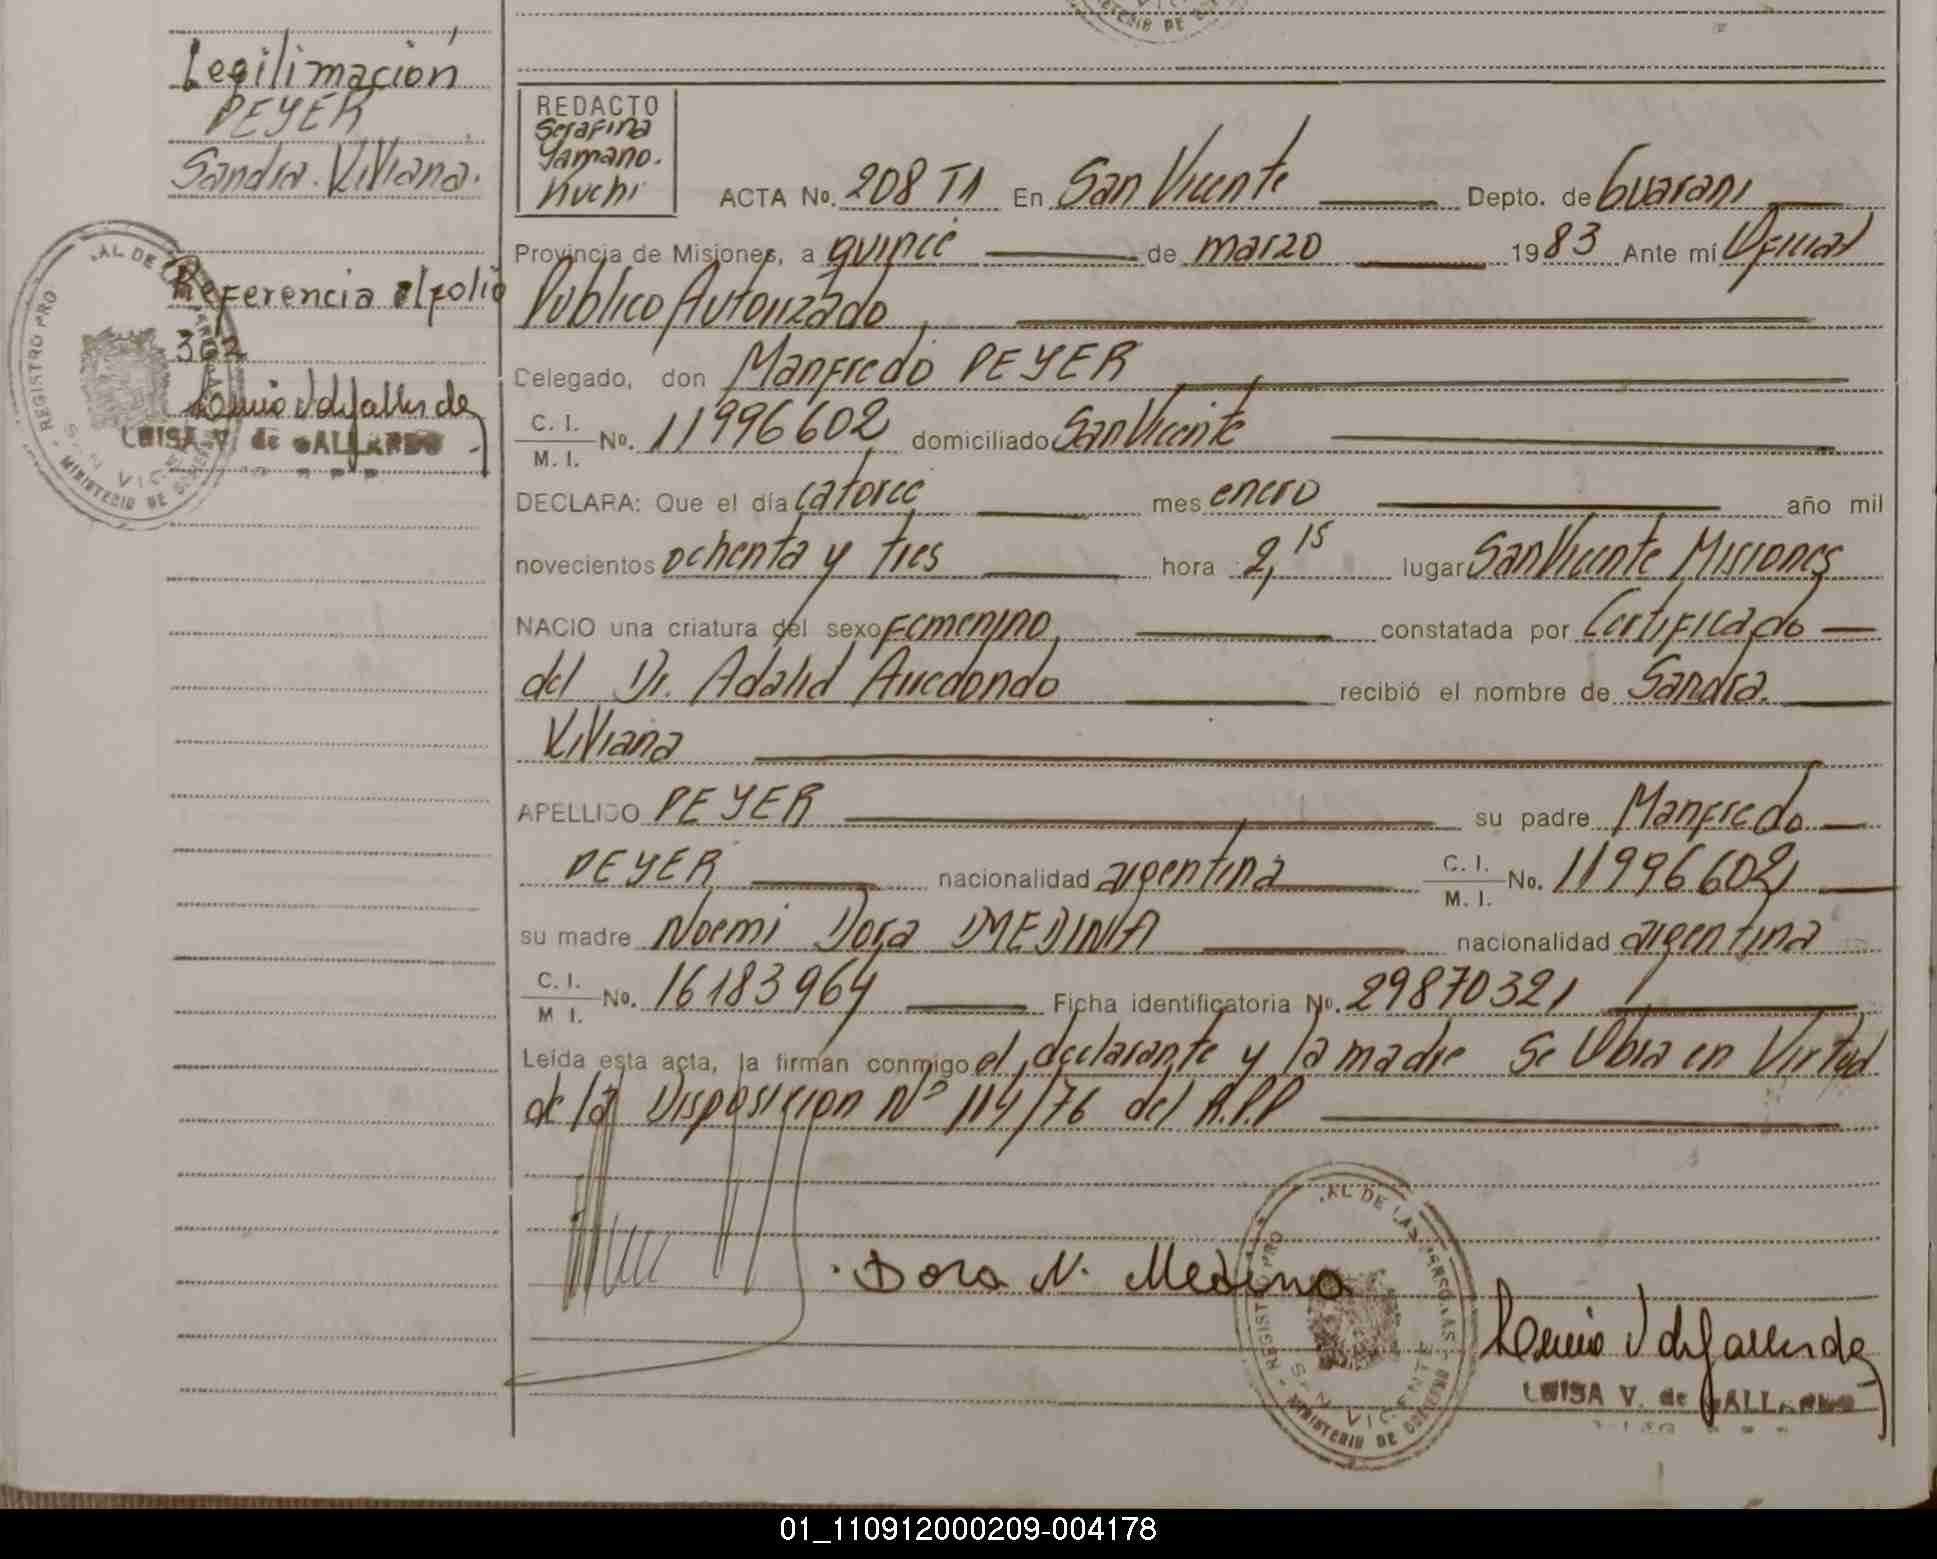 Legitimación
PEYER
Sandra. Viviana.
Referencia al folio
302
LUISA V. de GALLARDO
REGISTRO PRO AL DE LAS PERSONAS
SAN VICENTE
MINISTERIO DE GOBIERNO
REDACTO
Serafina
Yamano.
Kuchi
ACTA No. 208 T1 En San Vicente Depto. de Guarani
Provincia de Misiones, a quince de marzo 1983 Ante mí Oficial
Publico Autorizado
Delegado, don Manfredo PEYER
C. I.
M. I. No. 11996602 domiciliado San Vicente
DECLARA: Que el día catorce mes enero año mil
novecientos ochenta y tres hora 2,15 lugar San Vicente Misiones
NACIO una criatura del sexo Femenino, constatada por Certificado
del Dr. Adalid Arredondo recibió el nombre de Sandra.
Viviana
APELLIDO PEYER su padre Manfredo
PEYER nacionalidad argentina C. I.
M. I. No. 11996602
su madre Noemi Dora MEDINA nacionalidad argentina
C. I.
M. I. No. 16183964 Ficha identificatoria No. 29870321
Leída esta acta, la firman conmigo el declarante y la madre Se Obra en Virtud
de la Disposicion Nº 114/76 del R.P.P
Dora N. Medina
REGISTRO PRO AL DE LAS PERSONAS
SAN VICENTE
MINISTERIO DE GOBIERNO
LUISA V. de GALLARDO
01_110912000209-004178